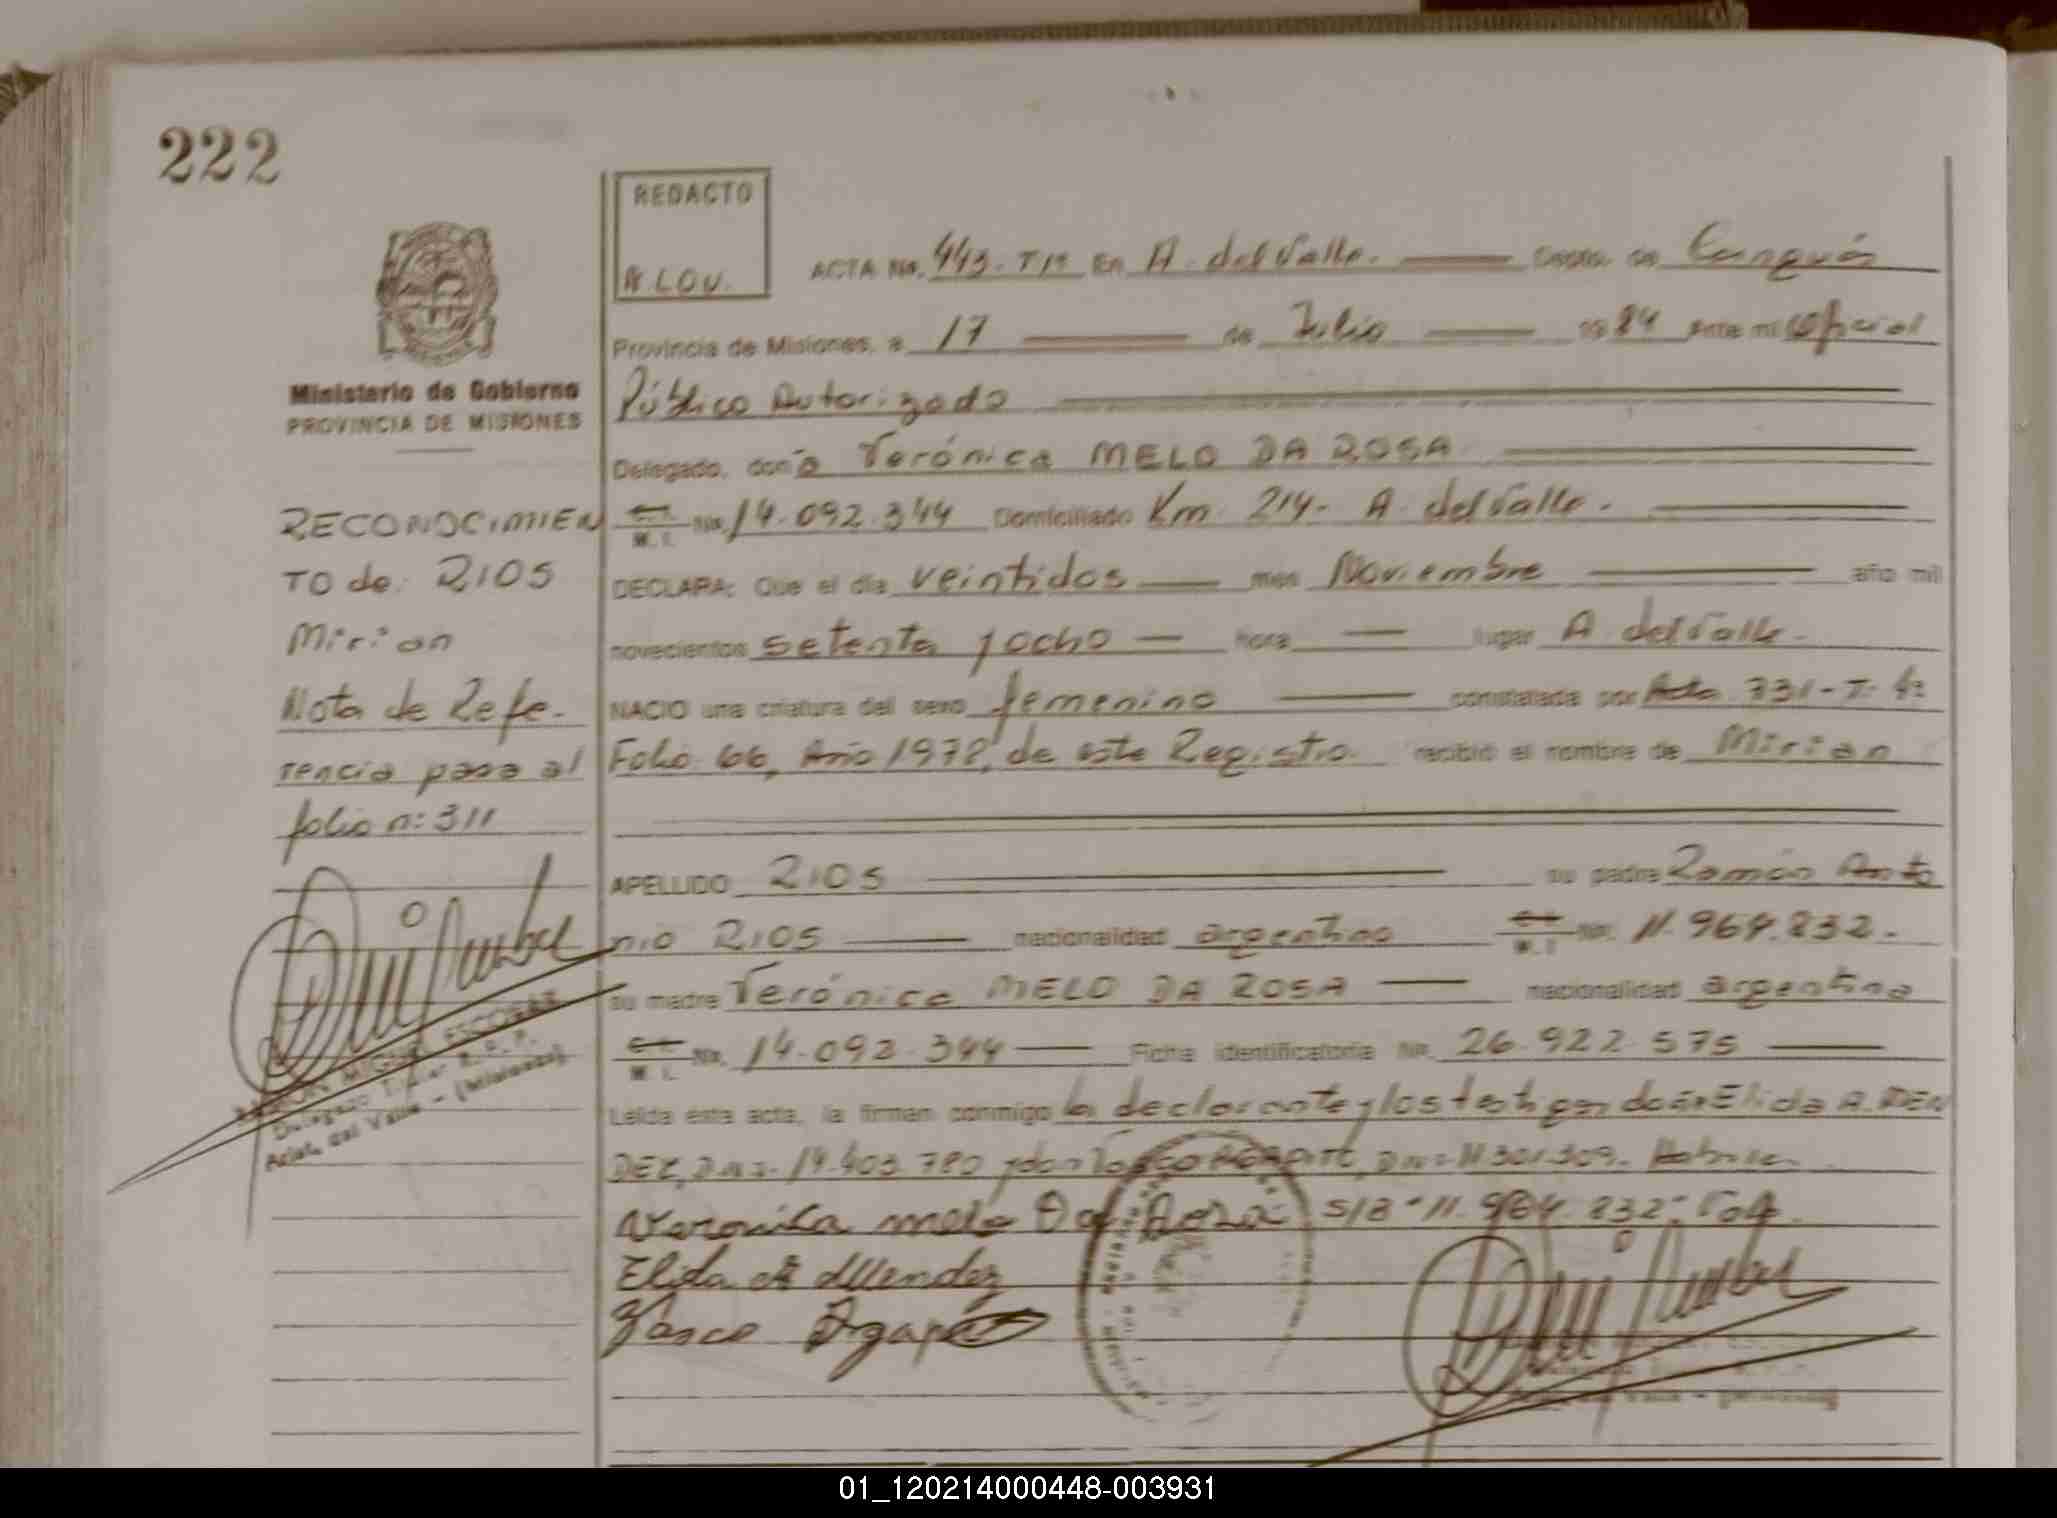 222
REDACTO
A. LOV.
ACTA No. 443 - Tº 1º En A. del Valle. Dpto. de Cainguás
Provincia de Misiones, a 17 de Julio 1984 ante mi Oficial
Público Autorizado
Ministerio de Gobierno
PROVINCIA DE MISIONES
Delegado, don ña Verónica MELO DA ROSA
C.I. M.I. No. 14.092.344 Domiciliado Km. 214 - A. del Valle.
DECLARA: Que el día veintidos mes Noviembre año mil
novecientos setenta y ocho hora lugar A. del Valle.
NACIO una criatura del sexo femenino constatada por Acta 731 - Tº 4º
Folio 66, Año 1978, de este Registro. recibió el nombre de Mirian
APELLIDO RIOS su padre Ramón Anto
nio RIOS nacionalidad argentino C.I. M.I. No. 11.964.832.
su madre Verónica MELO DA ROSA nacionalidad argentina
C.I. M.I. No. 14.092.344 Ficha identificatoria No. 26.922.575
Leída esta acta, la firman conmigo la declarante y los testigos doña Elida A. MEN
DEZ, 14.403.780 y don 11.301.309.
Veronica melo Da Roza S/B - 11.964.832 - Vale.
Elida A Mendez
Vasco Agapit
RECONOCIMIEN
TO de: RIOS
Mirian
Nota de Refe-
rencia pasa al
folio nº 311
MIGUEL ESCOBAR
Delegado Titular R. P.
Arist. del Valle - (Misiones)
01_120214000448-003931